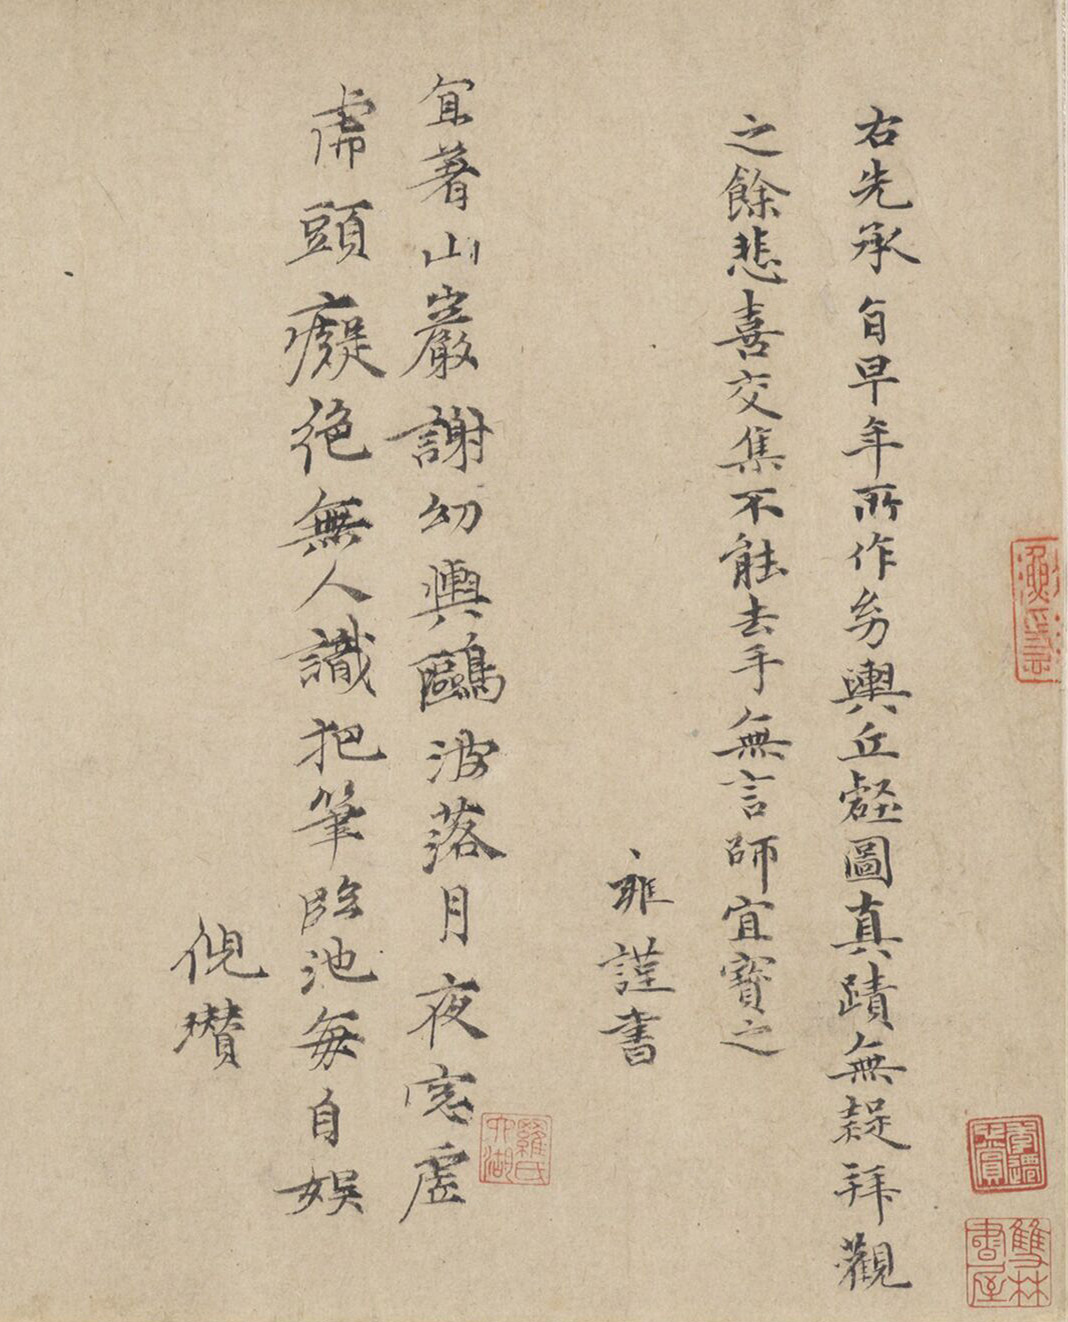 右先承旨早年所作幼輿丘壑圖真蹟無疑拜觀
之餘悲喜交集不能去手無言師宜寶之
雍謹書
宜著山巖謝幼輿鷗波落月夜窓虛
虎頭癡絕無人識把筆臨池每自娛
倪瓚
雙林書屋
羅氏六湖